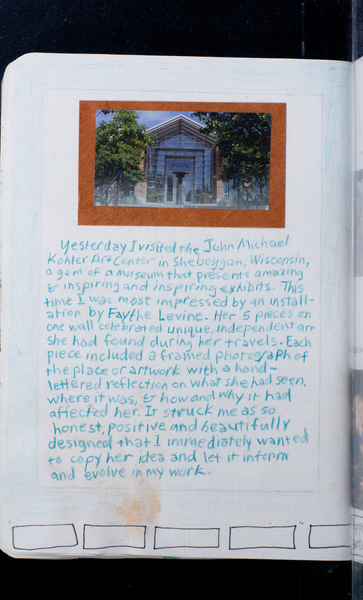 Yesterday I visited the John Michael
Kohler Art Center in Sheboygan, Wisconsin,
a gem of a museum that presents amazing
& inspiring and inspiring exhibits. This
time I was most impressed by an install-
ation by Faythe Levine. Her 5 pieces on
one wall celebrated unique, independent art
she had found during her travels. Each
piece included a framed photograph of
the place or artwork with a hand-
lettered reflection on what she had seen,
where it was, & how and why it had
affected her. It struck me as so
honest, positive and beautifully
designed that I immediately wanted
to copy her idea and let it inform
and evolve in my work.